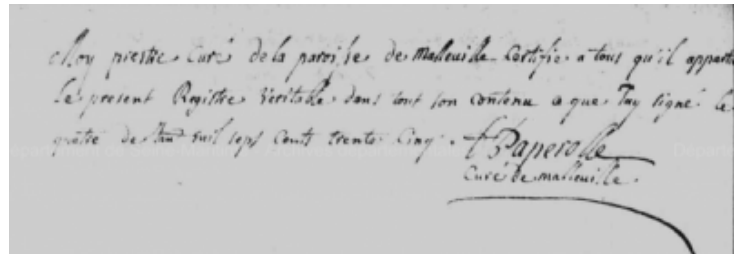 Moy prestre Curé dela paroisse de Malleville Certifie a tous qu'il apparti
Le present Registre veritable dans tout son contenu a que Jay signé le
quatre de Jan mil sept Cents trente Cinq. Paperolle
Curé de malleville.